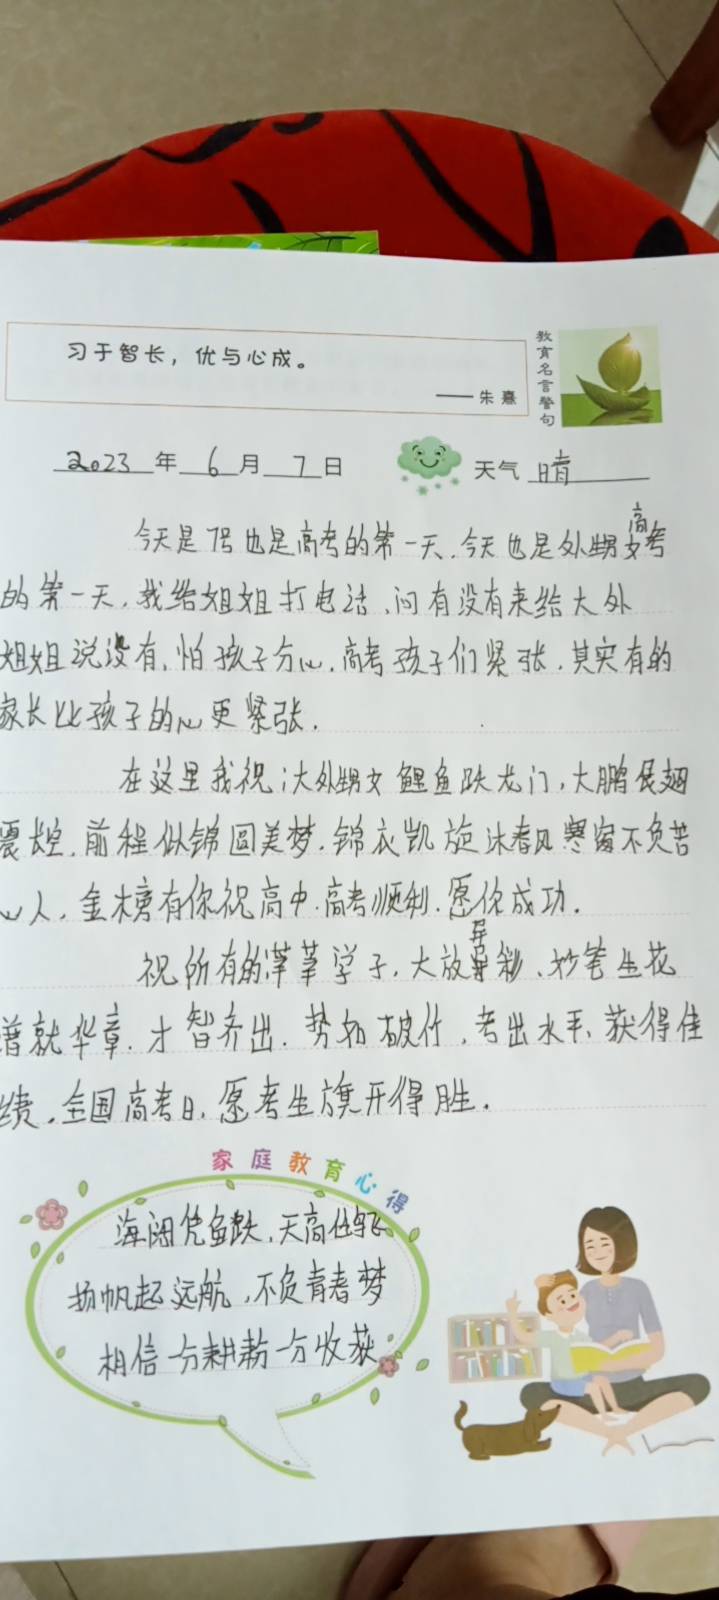 习于智长，优与心成。
——朱熹
教育名言警句
2023年6月7日
天气 晴
今天是7号也是高考的第一天.今天也是外甥女高考
的第一天.我给姐姐打电话、问有没有来给大外
姐姐说没有、怕孩子分心.高考孩子们紧张.其实有的
家长比孩子的心更紧张.
在这里我祝:大外甥女鲤鱼跃龙门,大鹏展翅
震长空.前程似锦圆美梦.锦衣凯旋沐春风寒窗不负苦
心人.金榜有你祝高中.高考顺利.愿你成功.
祝所有的莘莘学子.大放异彩、妙笔生花
谱就华章.才智齐出.势如破竹,考出水平、获得佳
绩.全国高考日.愿考生旗开得胜.
家庭教育心得
海阔凭鱼跃.天高任鸟飞
扬帆起远航,不负青春梦
相信一分耕耘一分收获